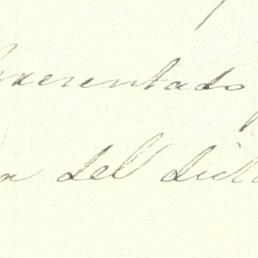 presentado
del dict